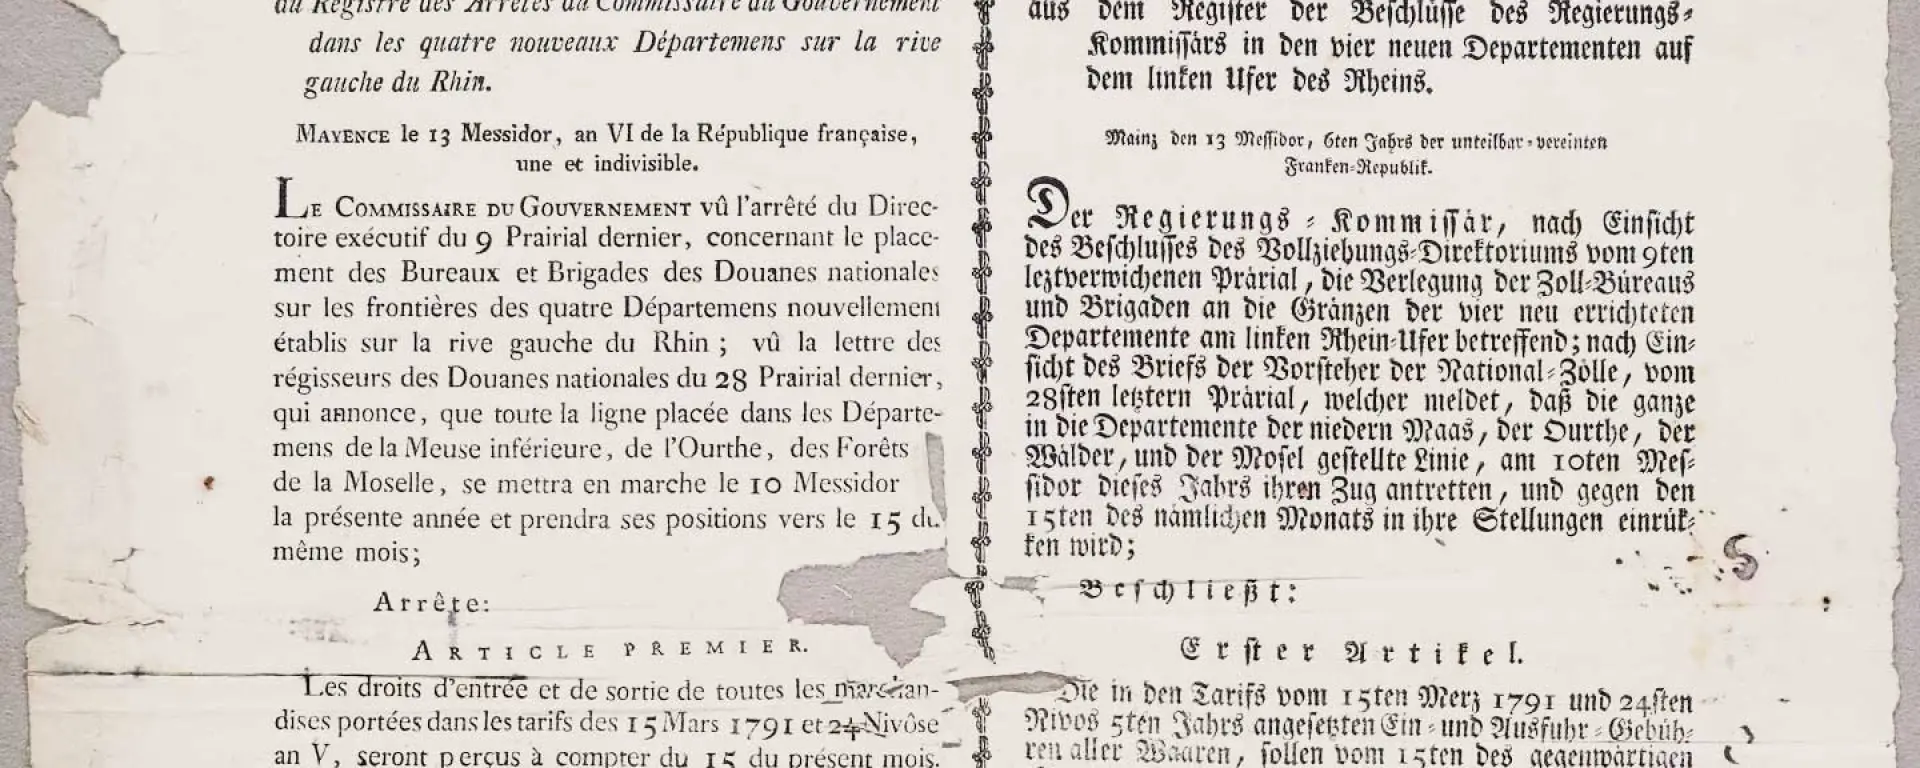 du Registre des Arrêtés du Commissaire du Gouvernement
dans les quatre nouveaux Départemens sur la rive
gauche du Rhin.
MAYENCE le 13 Messidor, an VI de la République française,
une et indivisible.
LE COMMISSAIRE DU GOUVERNEMENT vû l'arrêté du Direc-
toire exécutif du 9 Prairial dernier, concernant le place-
ment des Bureaux et Brigades des Douanes nationales
sur les frontières des quatre Départemens nouvellement
établis sur la rive gauche du Rhin ; vû la lettre des
régisseurs des Douanes nationales du 28 Prairial dernier,
qui annonce, que toute la ligne placée dans les Départe-
mens de la Meuse inférieure, de l'Ourthe, des Forêts
de la Moselle, se mettra en marche le 10 Messidor
la présente année et prendra ses positions vers le 15 du
même mois;
Arrête:
ARTICLE PREMIER.
Les droits d'entrée et de sortie de toutes les marchan-
dises portées dans les tarifs des 15 Mars 1791 et 24 Nivôse
an V, seront perçus à compter du 15 du présent mois.
aus dem Register der Beschlüsse des Regierungs-
Kommissärs in den vier neuen Departementen auf
dem linken Ufer des Rheins.
Mainz den 13 Messidor, 6ten Jahrs der unteilbar-vereinten
Franken-Republik.
Der Regierungs-Kommissär, nach Einsicht
des Beschlusses des Vollziehungs-Direktoriums vom 9ten
leztverwichenen Prärial, die Verlegung der Zoll-Büreaus
und Brigaden an die Gränzen der vier neu errichteten
Departemente am linken Rhein-Ufer betreffend; nach Ein-
sicht des Briefs der Vorsteher der National-Zölle, vom
28sten letztern Prärial, welcher meldet, daß die ganze
in die Departemente der niedern Maas, der Ourthe, der
Wälder, und der Mosel gestellte Linie, am 10ten Mes-
sidor dieses Jahrs ihren Zug antretten, und gegen den
15ten des nämlichen Monats in ihre Stellungen einrük-
ken wird;
Beschließt:
Erster Artikel.
Die in den Tarifs vom 15ten Merz 1791 und 24sten
Nivos 5ten Jahrs angesetzten Ein- und Ausfuhr-Gebüh-
ren aller Waaren, sollen vom 15ten des gegenwärtigen